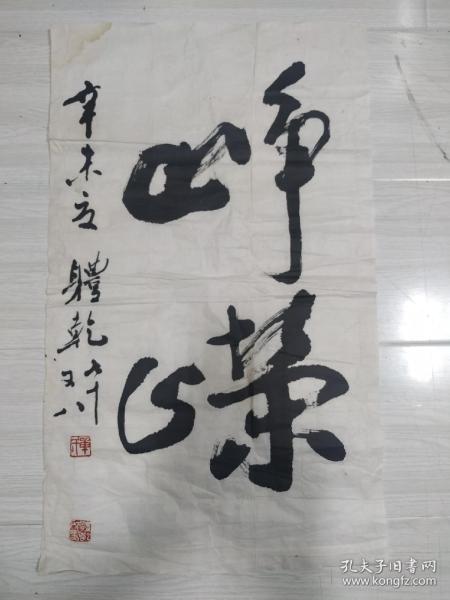 峥嵘
辛未夏
體乾
孔夫子旧书网
www.kongfz.com